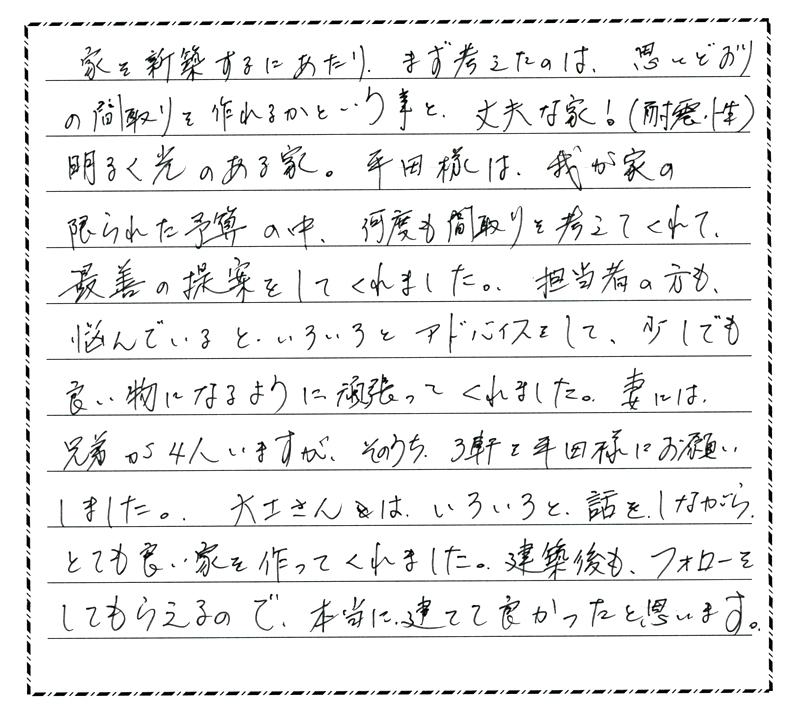 家を新築するにあたり、まず考えたのは、思いどおり
の間取りを作れるかという事と、丈夫な家！(耐震性)
明るく光のある家。平田様は、我が家の
限られた予算の中、何度も間取りを考えてくれて、
最善の提案をしてくれました。担当者の方も、
悩んでいると、いろいろとアドバイスをして、少しでも
良い物になるように頑張ってくれました。妻には、
兄弟が4人いますが、そのうち、3軒を平田様にお願い
しました。大工さんとは、いろいろと、話を、しながら、
とても良い家を作ってくれました。建築後も、フォローを
してもらえるので、本当に、建てて良かったと思います。